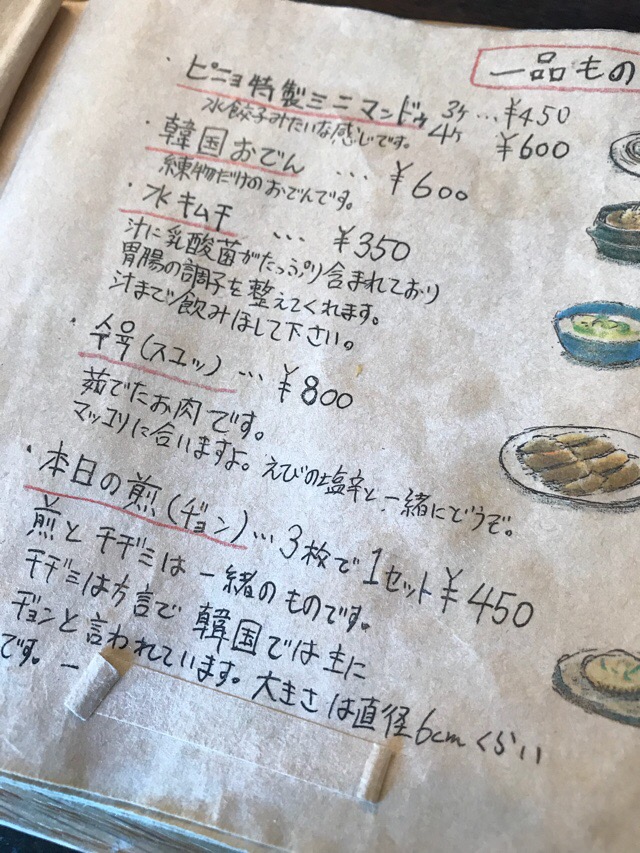 一品もの
・ピニョ特製ミニマンドゥ 3ヶ…¥450
水餃子みたいな感じです。 4ヶ ¥600
・韓国おでん … ¥600
練物だけのおでんです。
・水キムチ … ¥350
汁に乳酸菌がたっぷり含まれており
胃腸の調子を整えてくれます。
汁まで飲みほして下さい。
・수육(スユッ)… ¥800
茹でたお肉です。
マッコリに合いますよ。えびの塩辛と一緒にどうぞ。
・本日の煎(ヂョン)…3枚で1セット¥450
煎とチヂミは一緒のものです。
チヂミは方言で韓国では主に
ヂョンと言われています。大きさは直径6cmくらい
です。